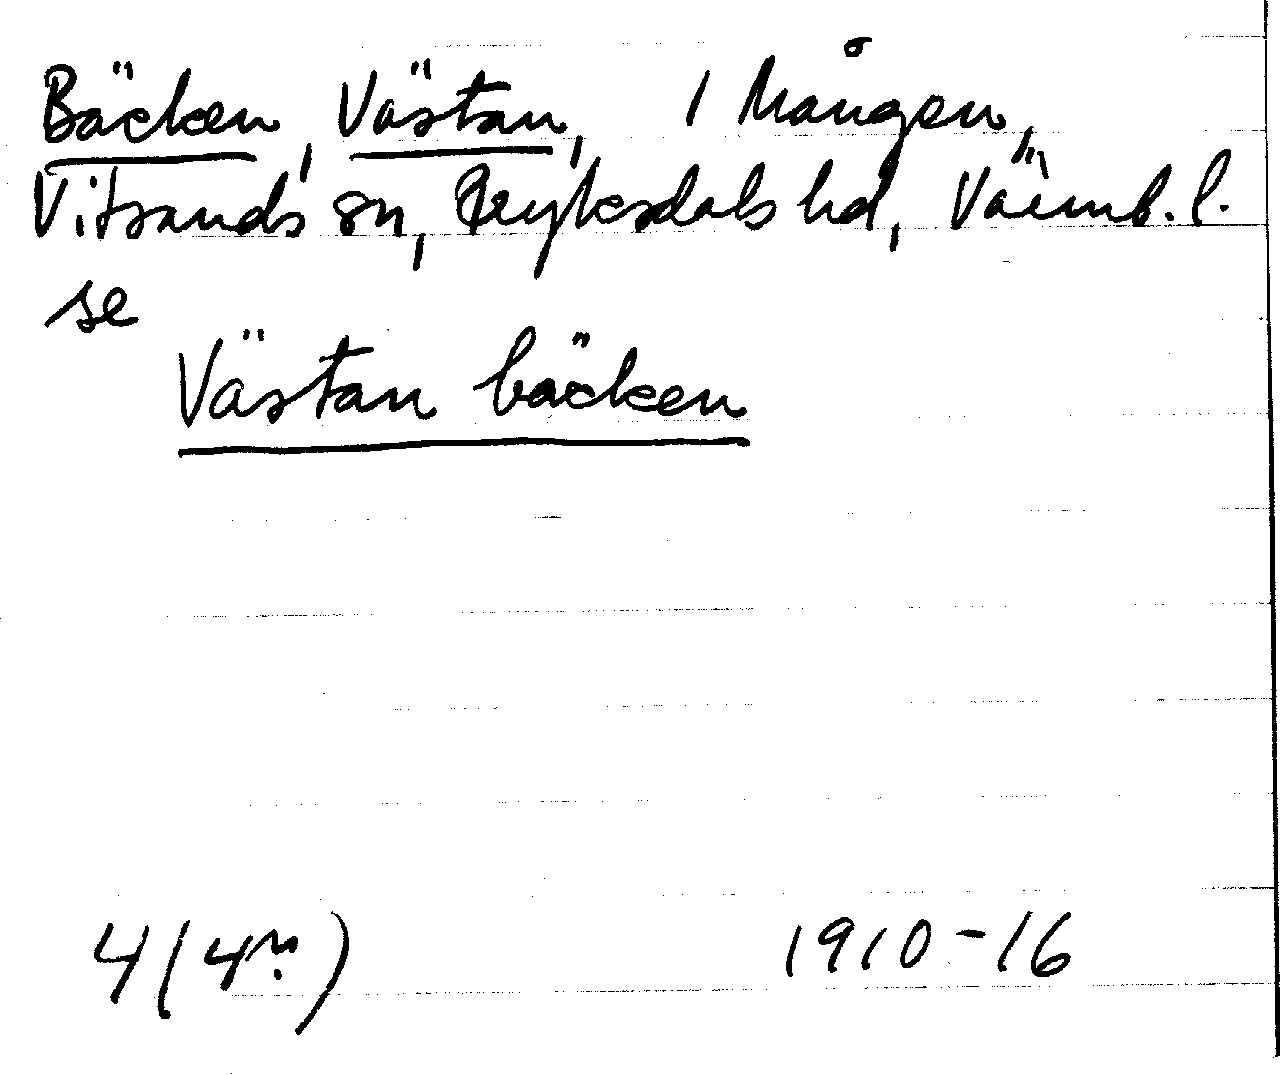 Bäcken, Västan, i Mången,
Vitsands sn, Fryksdals hd, Värml. l.
se
Västan bäcken
4 (4 m.)
1910-16